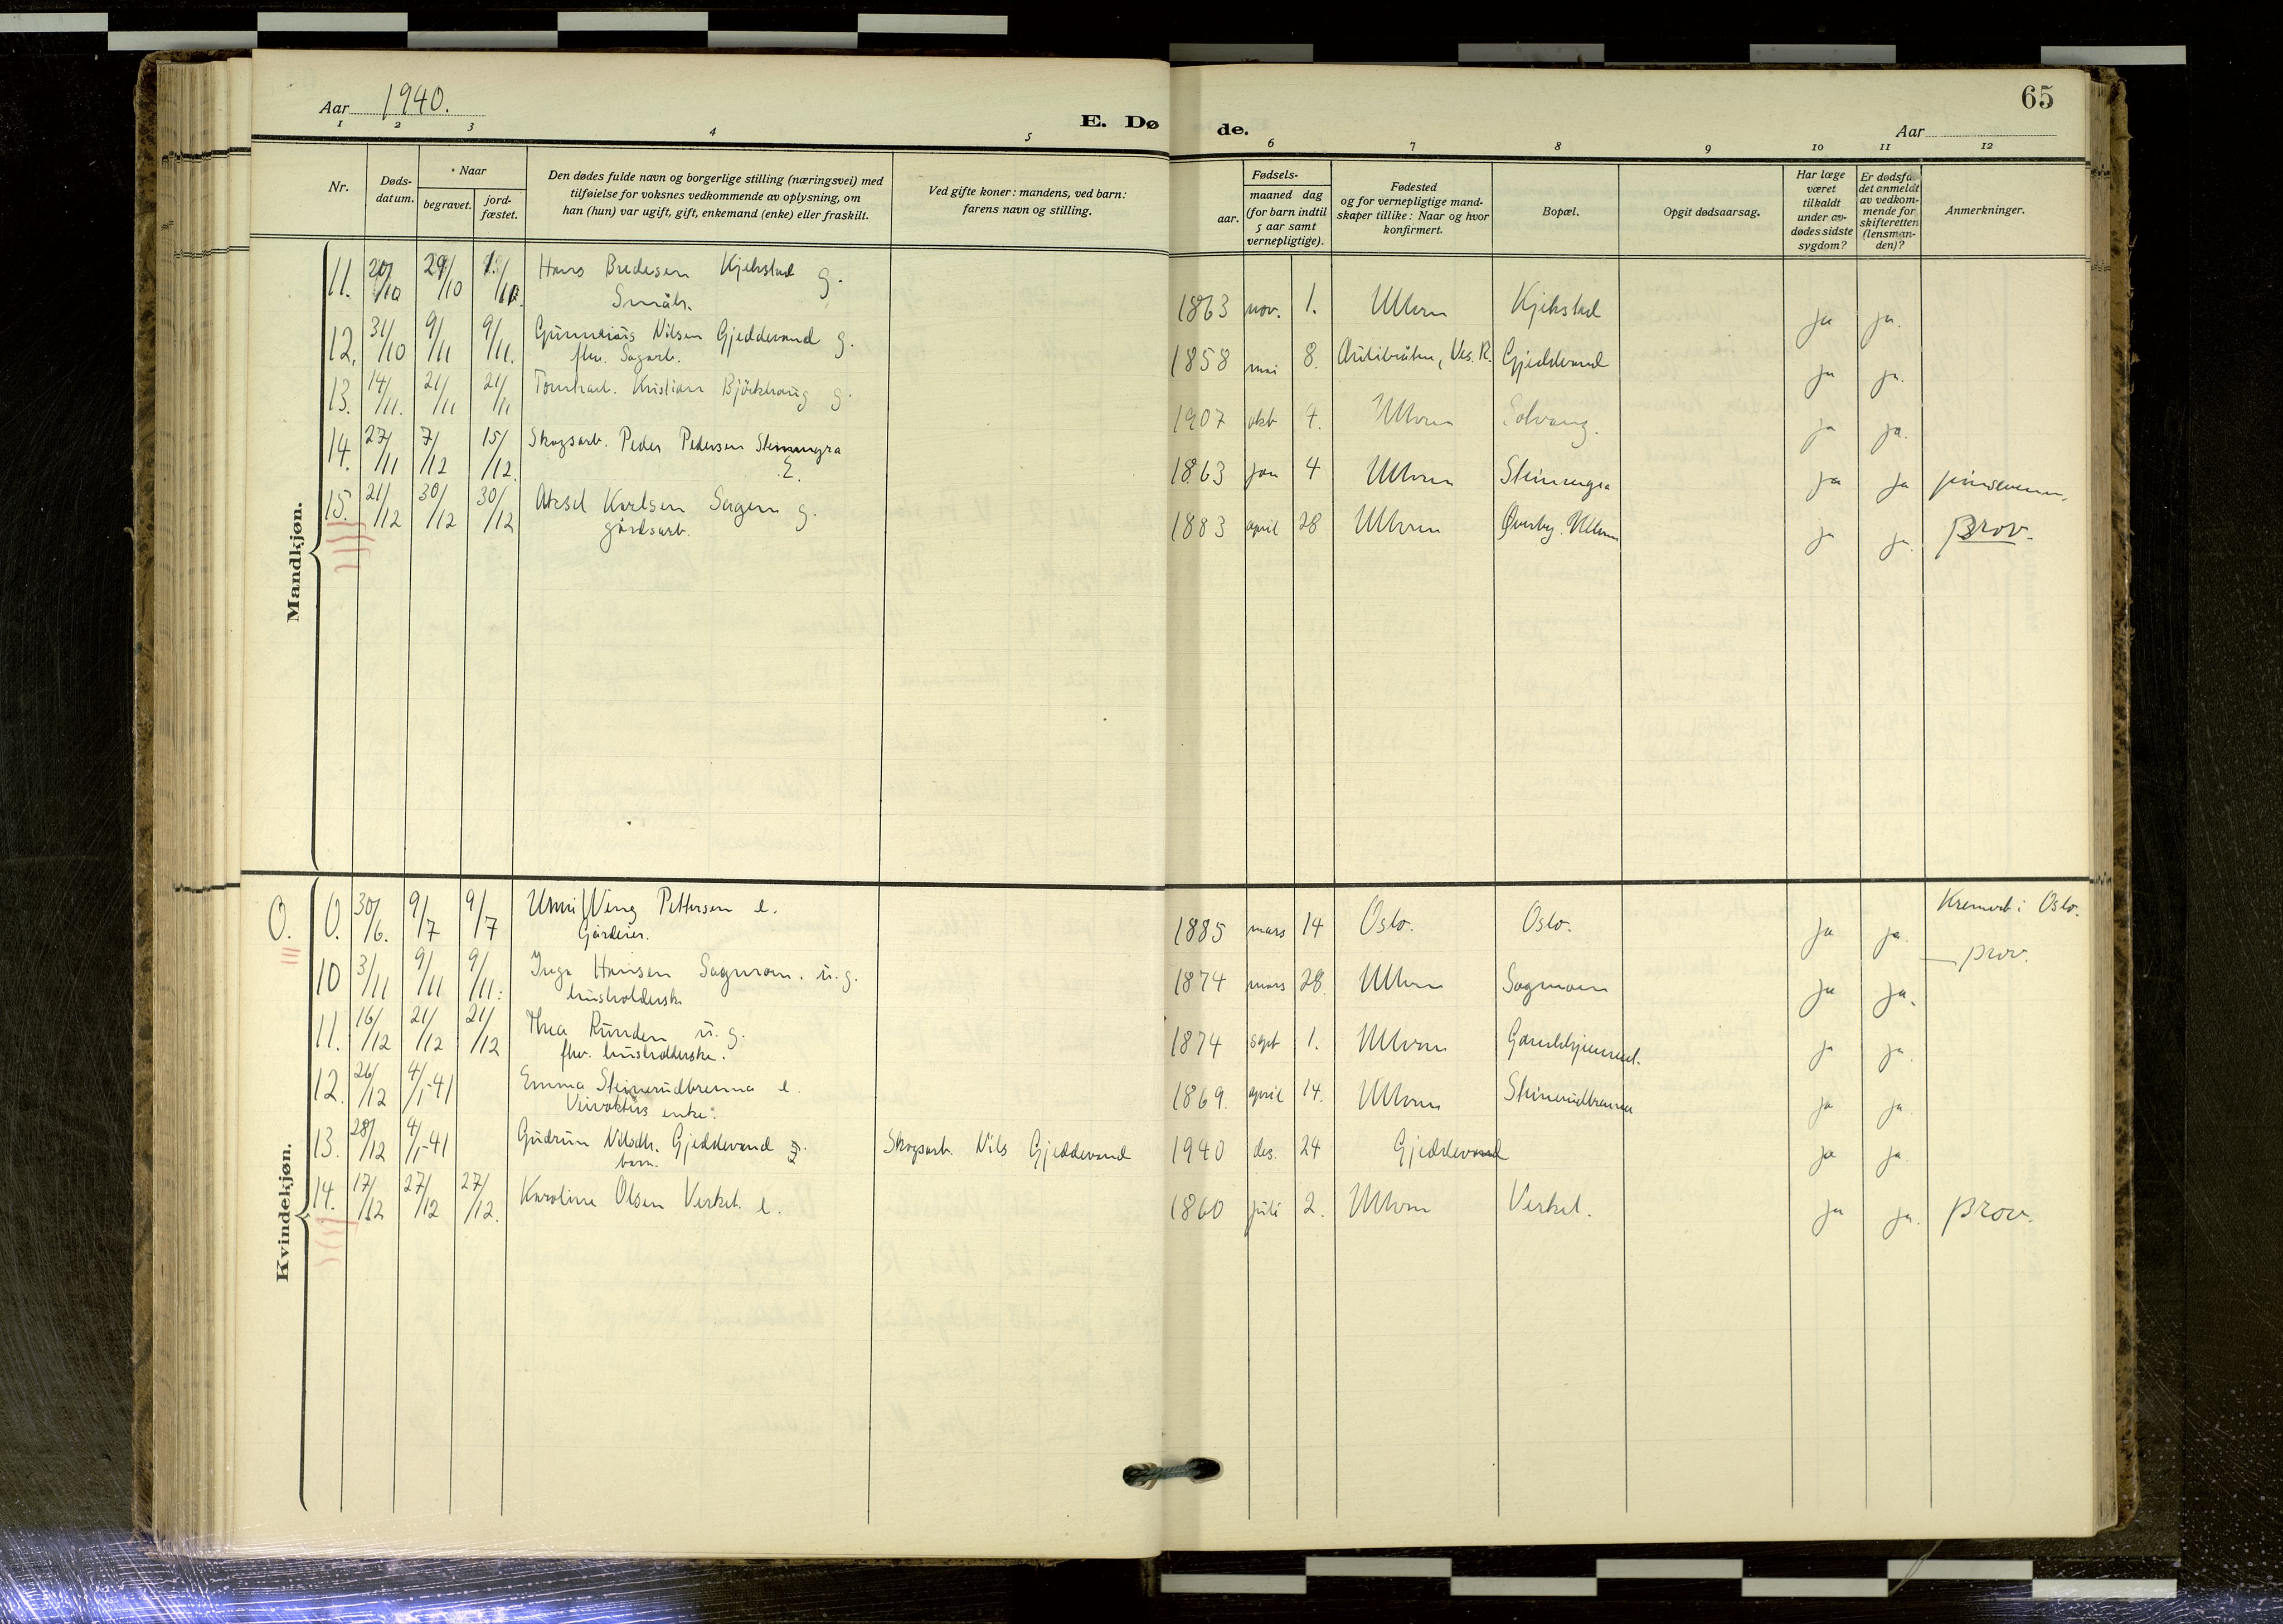 Aar 1940.
E. Dø
de.
Aar
65
1 2 3 4 5 6 7 8 9 10 11 12
Nr.
Døds-
datum.
Naar
begravet.
jord-
fæstet.
Den dødes fulde navn og borgerlige stilling (næringsvei) med
tilføielse for voksnes vedkommende av oplysning, om
han (hun) var ugift, gift, enkemand (enke) eller fraskilt.
Ved gifte koner: mandens, ved barn:
farens navn og stilling.
Fødsels-
aar.
maaned dag
(for barn indtil
5 aar samt
vernepligtige).
Fødested
og for vernepligtige mand-
skaper tillike: Naar og hvor
konfirmert.
Bopæl.
Opgit dødsaarsag.
Har læge
været
tilkaldt
under av-
dødes sidste
sygdom?
Er dødsfal
det anmeldt
av vedkom-
mende for
skifteretten
(lensman-
den)?
Anmerkninger.
Mandkjøn.
11. 20/10 29/10 Hans Bredesen Kjekstad g. 1863 nov. 1. Ullern Kjekstad ja ja.
Småbr.
12. 31/10 9/11 9/11. Nilsen Gjeddevand g. 1858 mai 8. Gjeddevand ja ja.
fhv. Sagarb.
13. 14/11. 21/11 21/11 Tomtearb. Kristian Björkhaug g. 1907 okt 4. Ullern Solvang. ja ja.
14. 27/11 7/12 15/12. Skogsarb. Peder Pedersen 1863 jan 4 Ullern ja ja pinseven.
E.
15. 21/12 30/12 30/12 Aksel Karlsen Sagen g. 1883 april 28 Ullern Överby. Ullern ja ja. Prov.
gårdsarb.
Kvindekjøn.
0. 0. 30/6. 9/7 9/7 Pettersen e. 1885 mars 14 Oslo. Oslo. ja ja. Kremert i Oslo.
Gårdeier.
prov.
10 3/11 9/11 9/11. Inga Hansen Sagmoen. u.g. 1874 mars 28. Ullern Sagmoen ja ja.
husholderske
11. 16/12 21/12 21/12 Thea Runden u.g. 1874 sept 1. Ullern ja ja.
fhv. husholderske.
12. 26/12 4/1-41 Emma Steinerudbrenna e. 1869. april 14. Ullern Steinerudbrenna ja ja.
Veivokters enke.
13. 28/12 4/1-41 Gudrun Nilsdtr. Gjeddevand Skogsarb. Nils Gjeddevand 1940 des. 24 Gjeddevand ja ja.
barn.
14. 17/12 27/12 27/12. Karoline Olsen Verket. e. 1860 juli 2. Ullern Verket. ja ja. Prov.